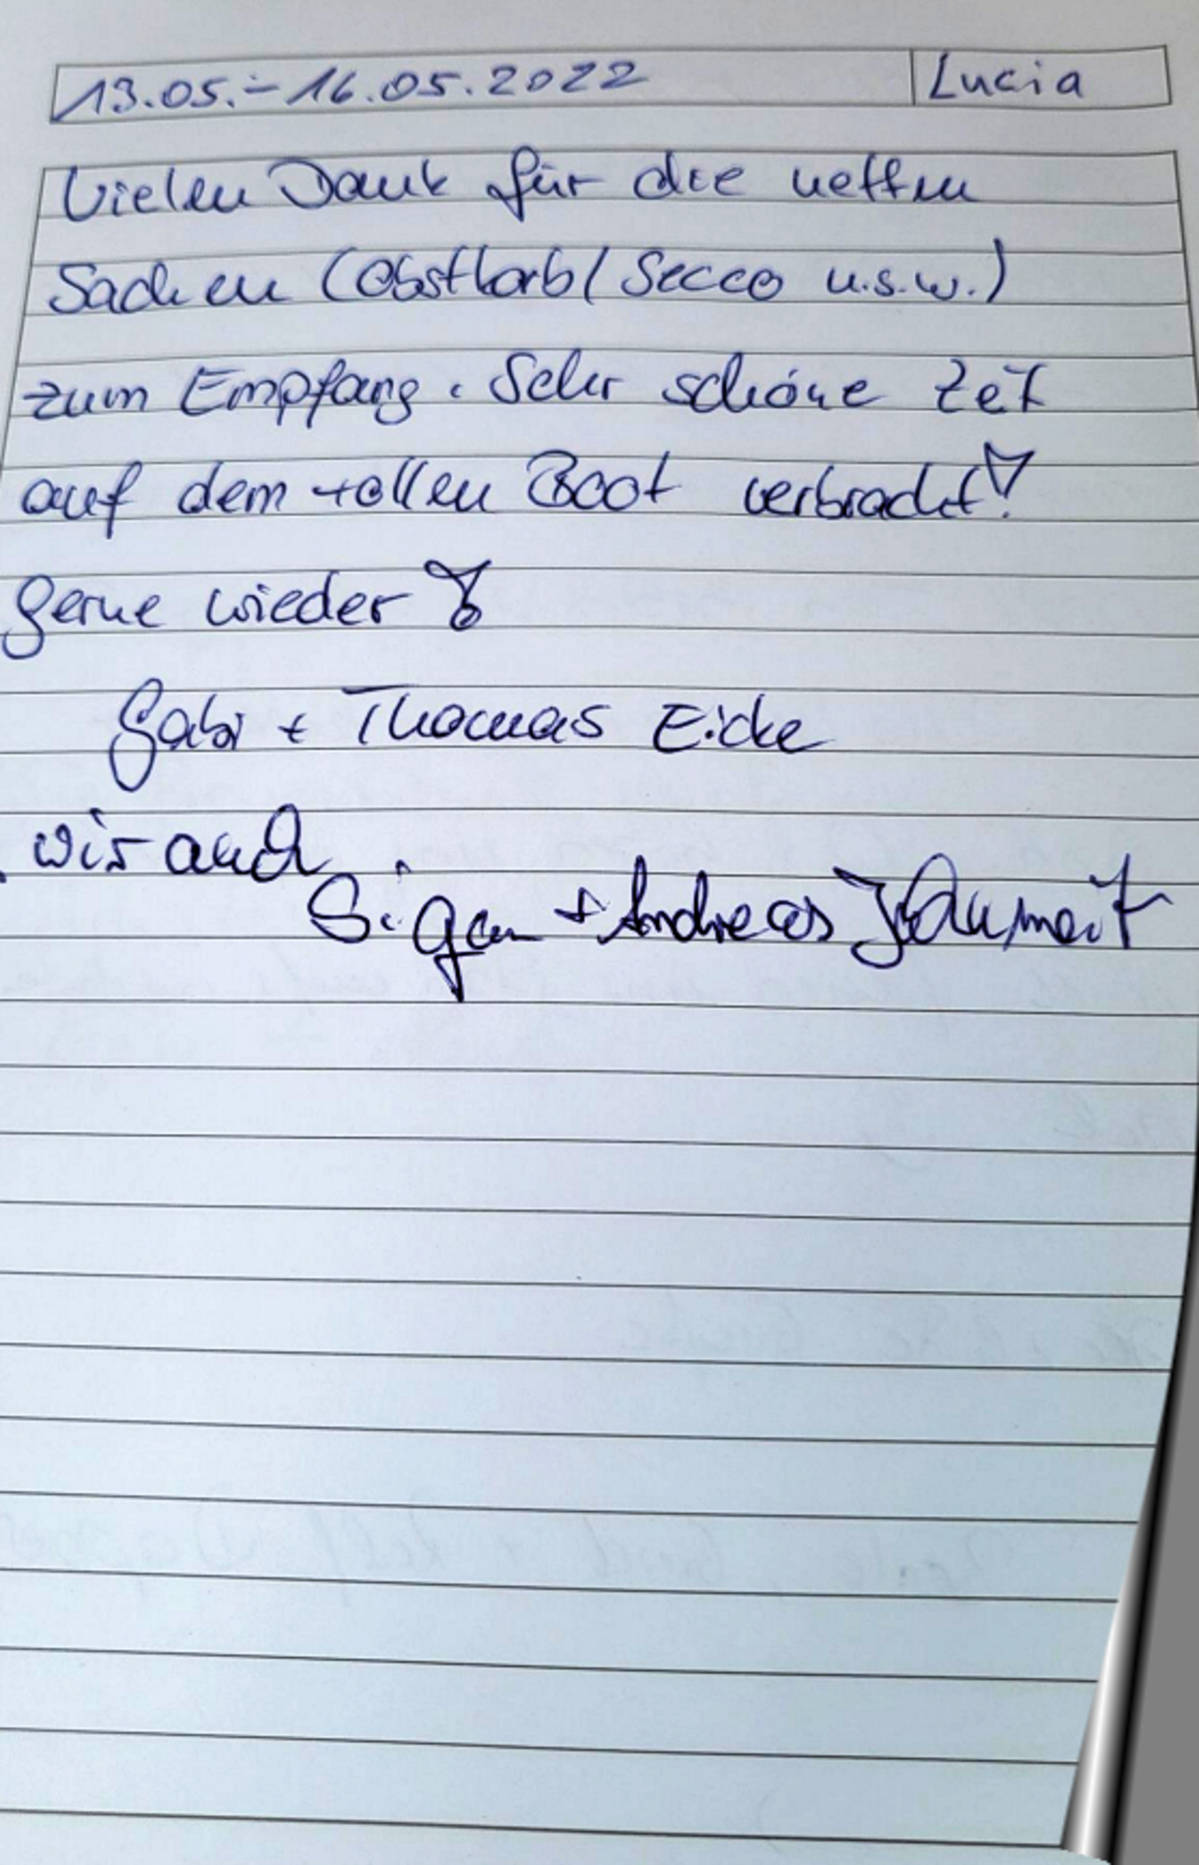 13.05.-16.05.2022 Lucia
Vielen Dank für die netten
Sachen (Obstkorb/Secco u.s.w.)
zum Empfang. Sehr schöne Zeit
auf dem tollen Boot verbracht!
Gerne wieder!
Gabi + Thomas Eicke
wir auch
+ Andreas